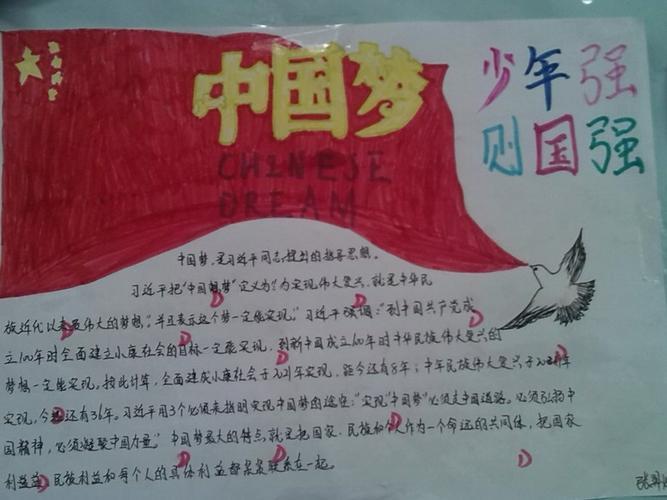 中国梦
CHINESE
DREAM
少年强
则国强
中国梦,是习近平同志提出的指导思想。
习近平把"中国梦"定义为"为实现伟大复兴,就是中华民
族近代以来最伟大的梦想,"并且表示这个梦"一定能实现"。习近平强调:"到中国共产党成
立100年时全面建立小康社会的目标一定能实现,到新中国成立100年时中华民族伟大复兴的
梦想一定能实现,按此计算,全面建成小康社会于2021年实现,距今还有8年;中华民族伟大复兴于
实现,今还有36年。习近平用3个必须来指明实现中国梦的途径:"实现"中国梦"必须走中国道路。必须弘扬中
国精神,必须凝聚中国力量。"中国梦最大的特点,就是把国家、民族和个人作为一个命运的共同体,把国家
利益、民族利益和每个人的具体利益都紧紧联系在一起。